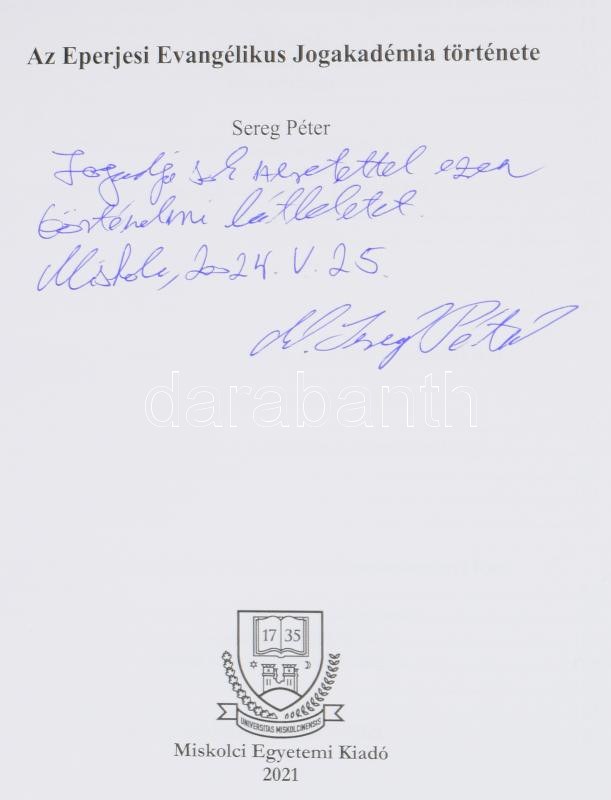 Az Eperjesi Evangélikus Jogakadémia története
Sereg Péter
Fogadja sok szeretettel ezen
történelmi látleletet.
Miskolc, 2024. V. 25.
dr. Sereg Péter
darabanth
17 35
UNIVERSITAS MISKOLCINENSIS
Miskolci Egyetemi Kiadó
2021